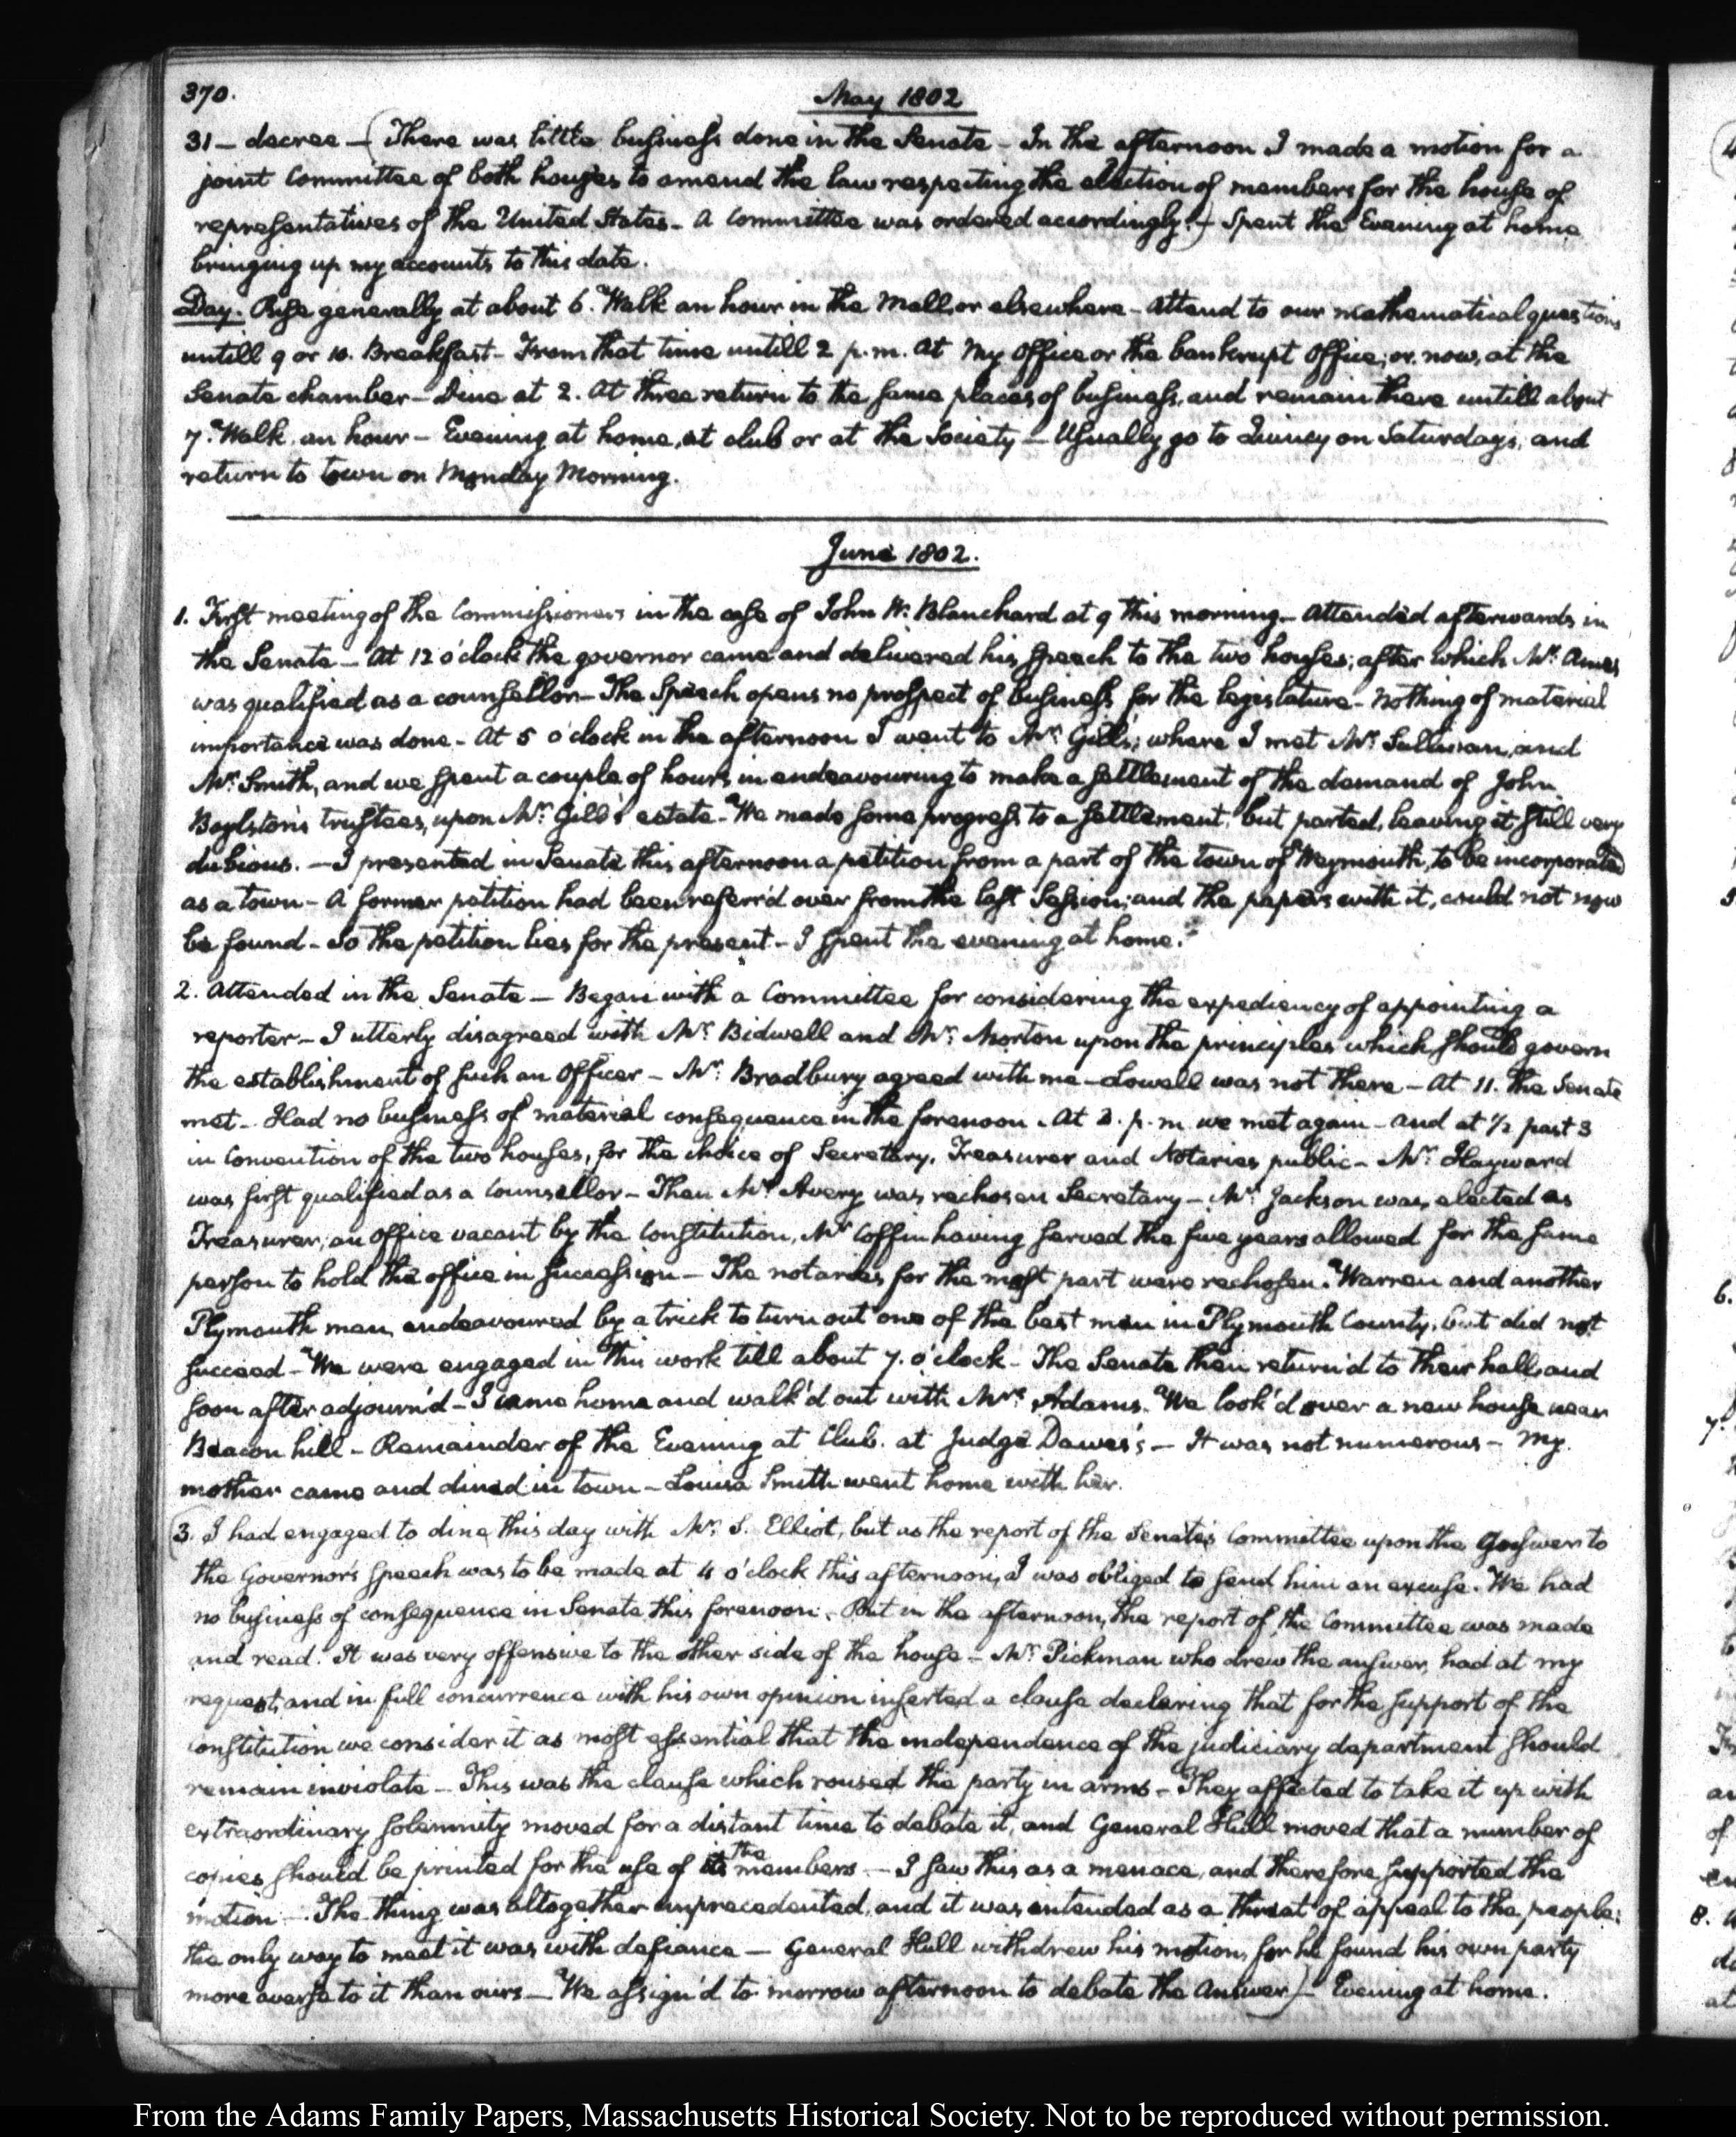 370.
May 1802
31 — decree — (There was little business done in the Senate — In the afternoon I made a motion for a
joint Committee of both houses to amend the law respecting the election of members for the house of
representatives of the United States — A Committee was ordered accordingly.) — Spent the Evening at home
bringing up my accounts to this date.
Day. Rise generally at about 6. Walk an hour in the Mall or elsewhere — Attend to our mathematical questions
untill 9 or 10. Breakfast — From that time untill 2 p.m. at my Office or the bankrupt Office, or now, at the
Senate chamber — Dine at 2. At three return to the same places of business, and remain there untill about
7. Walk an hour — Evening at home, at club or at the Society — Usually go to Quincy on Saturdays, and
return to town on Monday Morning.
June 1802.
1. First meeting of the Commissioners in the case of John W. Blanchard at 9 this morning — Attended afterwards in
the Senate — At 12 o'clock the governor came and delivered his speech to the two houses; after which Mr. Ames
was qualified as a counsellor — The Speech opens no prospect of business for the legislature — Nothing of material
importance was done — At 5 o'clock in the afternoon I went to Mr. Gill's; where I met Mr. Sullivan, and
Mr. Smith, and we spent a couple of hours in endeavouring to make a settlement of the demand of John
Boylston's trustees, upon Mr. Gill's estate — We made some progress to a settlement, but parted, leaving it still very
dubious. — I presented in Senate this afternoon a petition from a part of the town of Weymouth, to be incorporated
as a town — A former petition had been referr'd over from the last Session; and the papers with it, could not now
be found — So the petition lies for the present — I spent the evening at home.
2. Attended in the Senate — Began with a Committee for considering the expediency of appointing a
reporter — I utterly disagreed with Mr. Bidwell and Mr. Morton upon the principles which should govern
the establishment of such an Officer — Mr. Bradbury agreed with me — Lowell was not there — At 11. the Senate
met — Had no business of material consequence in the forenoon. At 3. p.m. we met again — and at 1/2 past 3
in Convention of the two houses, for the choice of Secretary, Treasurer and Notaries public — Mr. Hayward
was first qualified as a Counsellor — Then Mr. Avery was rechosen Secretary — Mr. Jackson was elected as
Treasurer; an office vacant by the Constitution, Mr. Coffin having served the five years allowed for the same
person to hold the office in succession — The notaries for the most part were rechosen. Warren and another
Plymouth man, endeavoured by a trick to turn out one of the best men in Plymouth County, but did not
succeed — We were engaged in this work till about 7. o'clock — The Senate then return'd to their hall, and
soon after adjourn'd — I came home and walk'd out with Mrs. Adams. We look'd over a new house near
Beacon hill — Remainder of the Evening at Club. at Judge Dawes's — It was not numerous — My
mother came and dined in town — Louisa Smith went home with her.
(3. I had engaged to dine this day with Mr. S. Elliot, but as the report of the Senate's Committee upon the Answer to
the Governor's speech was to be made at 4 o'clock this afternoon, I was obliged to send him an excuse. We had
no business of consequence in Senate this forenoon. But in the afternoon, the report of the Committee was made
and read. It was very offensive to the other side of the house — Mr. Pickman who drew the answer, had at my
request, and in full concurrence with his own opinion inserted a clause declaring that for the support of the
constitution we consider it as most essential that the independence of the judiciary department should
remain inviolate — This was the clause which roused the party in arms — They affected to take it up with
extraordinary solemnity moved for a distant time to debate it, and General Hull moved that a number of
copies should be printed for the use of its the members — I saw this as a menace, and therefore supported the
motion — The thing was altogether unprecedented, and it was intended as a threat of appeal to the people:
the only way to meet it was with defiance — General Hull withdrew his motion, for he found his own party
more averse to it than ours — We assign'd to-morrow afternoon to debate the Answer) — Evening at home.
From the Adams Family Papers, Massachusetts Historical Society. Not to be reproduced without permission.